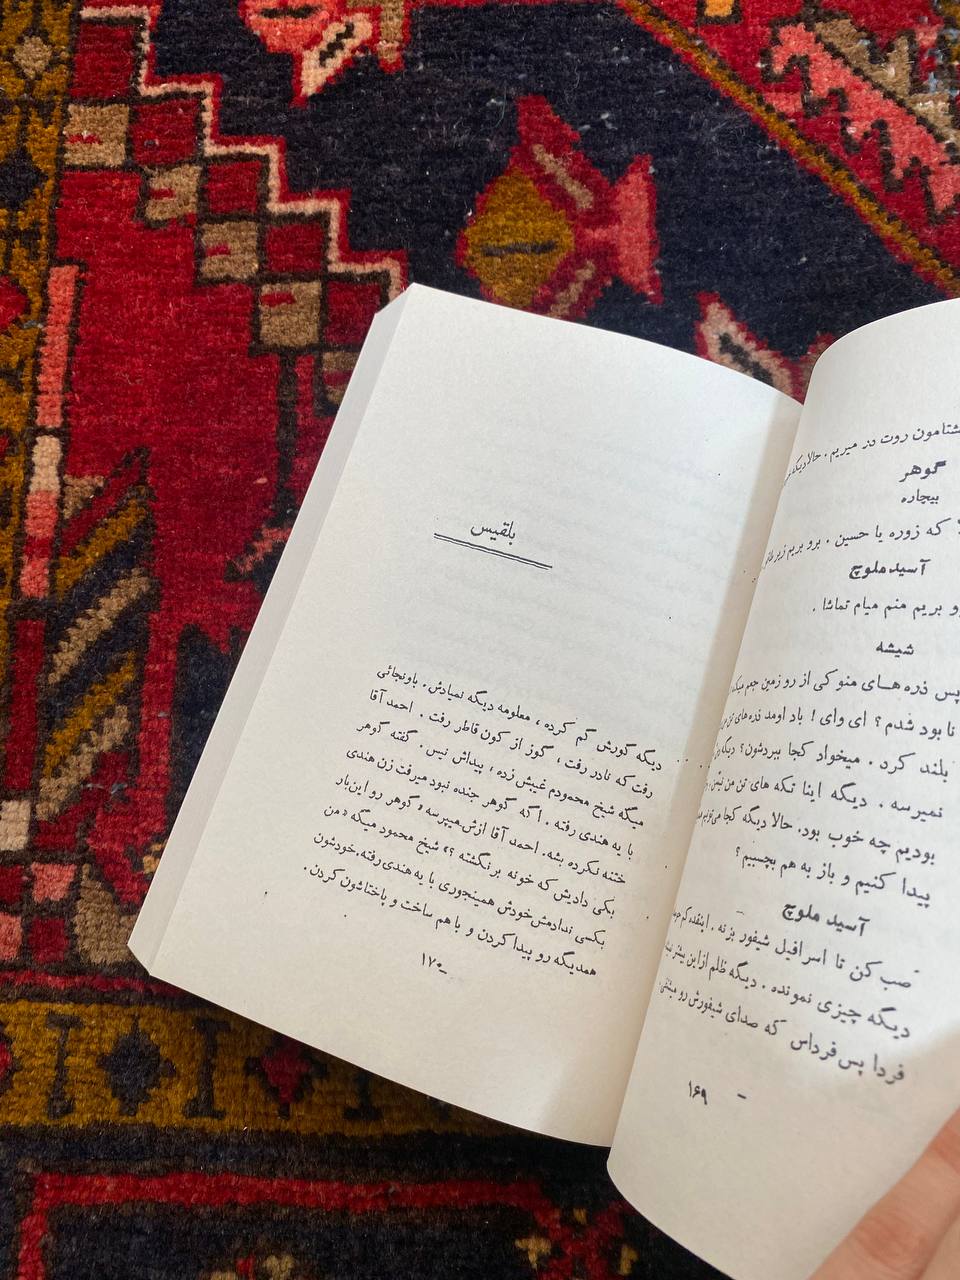 شتامون روت در میریم . حالا دیگه
گوهر
بیچاره
که زوره یا حسین . برو بریم زیر
آسید ملوچ
بریم منم میام تماشا .
شیشه
پس ذره های منو کی از رو زمین جمع میکنه
نابود شدم ؟ ای وای ! باد اومد ذره های تن
بلند کرد . میخواد کجا ببردشون؟ دیگه
نمیرسه . دیگه اینا تکه های تن من نیس
بودیم چه خوب بود. حالا دیگه کجا میتونیم
پیدا کنیم و باز به هم بچسبیم ؟
آسید ملوچ
صب کن تا اسرافیل شیفور بزنه . اینقده کم
دیگه چیزی نمونده . دیگه ظلم از این بیشتر
فردا پس فرداس که صدای شیفورش رو میشنفی
۱۶۹ -
بلقیس
دیگه گورش گم کرده ، معلومه دیگه نمیادش . باونجائی
رفت که نادر رفت ، گوز از کون قاطر رفت . احمد آقا
میگه شیخ محمودم غیبش زده ، پیداش نیس . گفته گوهر
با یه هندی رفته . اگه گوهر جنده نبود میرفت زن هندی
ختنه نکرده بشه. احمد آقا ازش میپرسه « گوهر رو این‌بار
بکی دادیش که خونه برنگشته ؟» شیخ محمود میگه « من
بکسی ندادمش خودش همینجوری با یه هندی رفته. خودشون
همدیگه رو پیدا کردن و با هم ساخت و پاختاشون کردن .
۱۷۰-